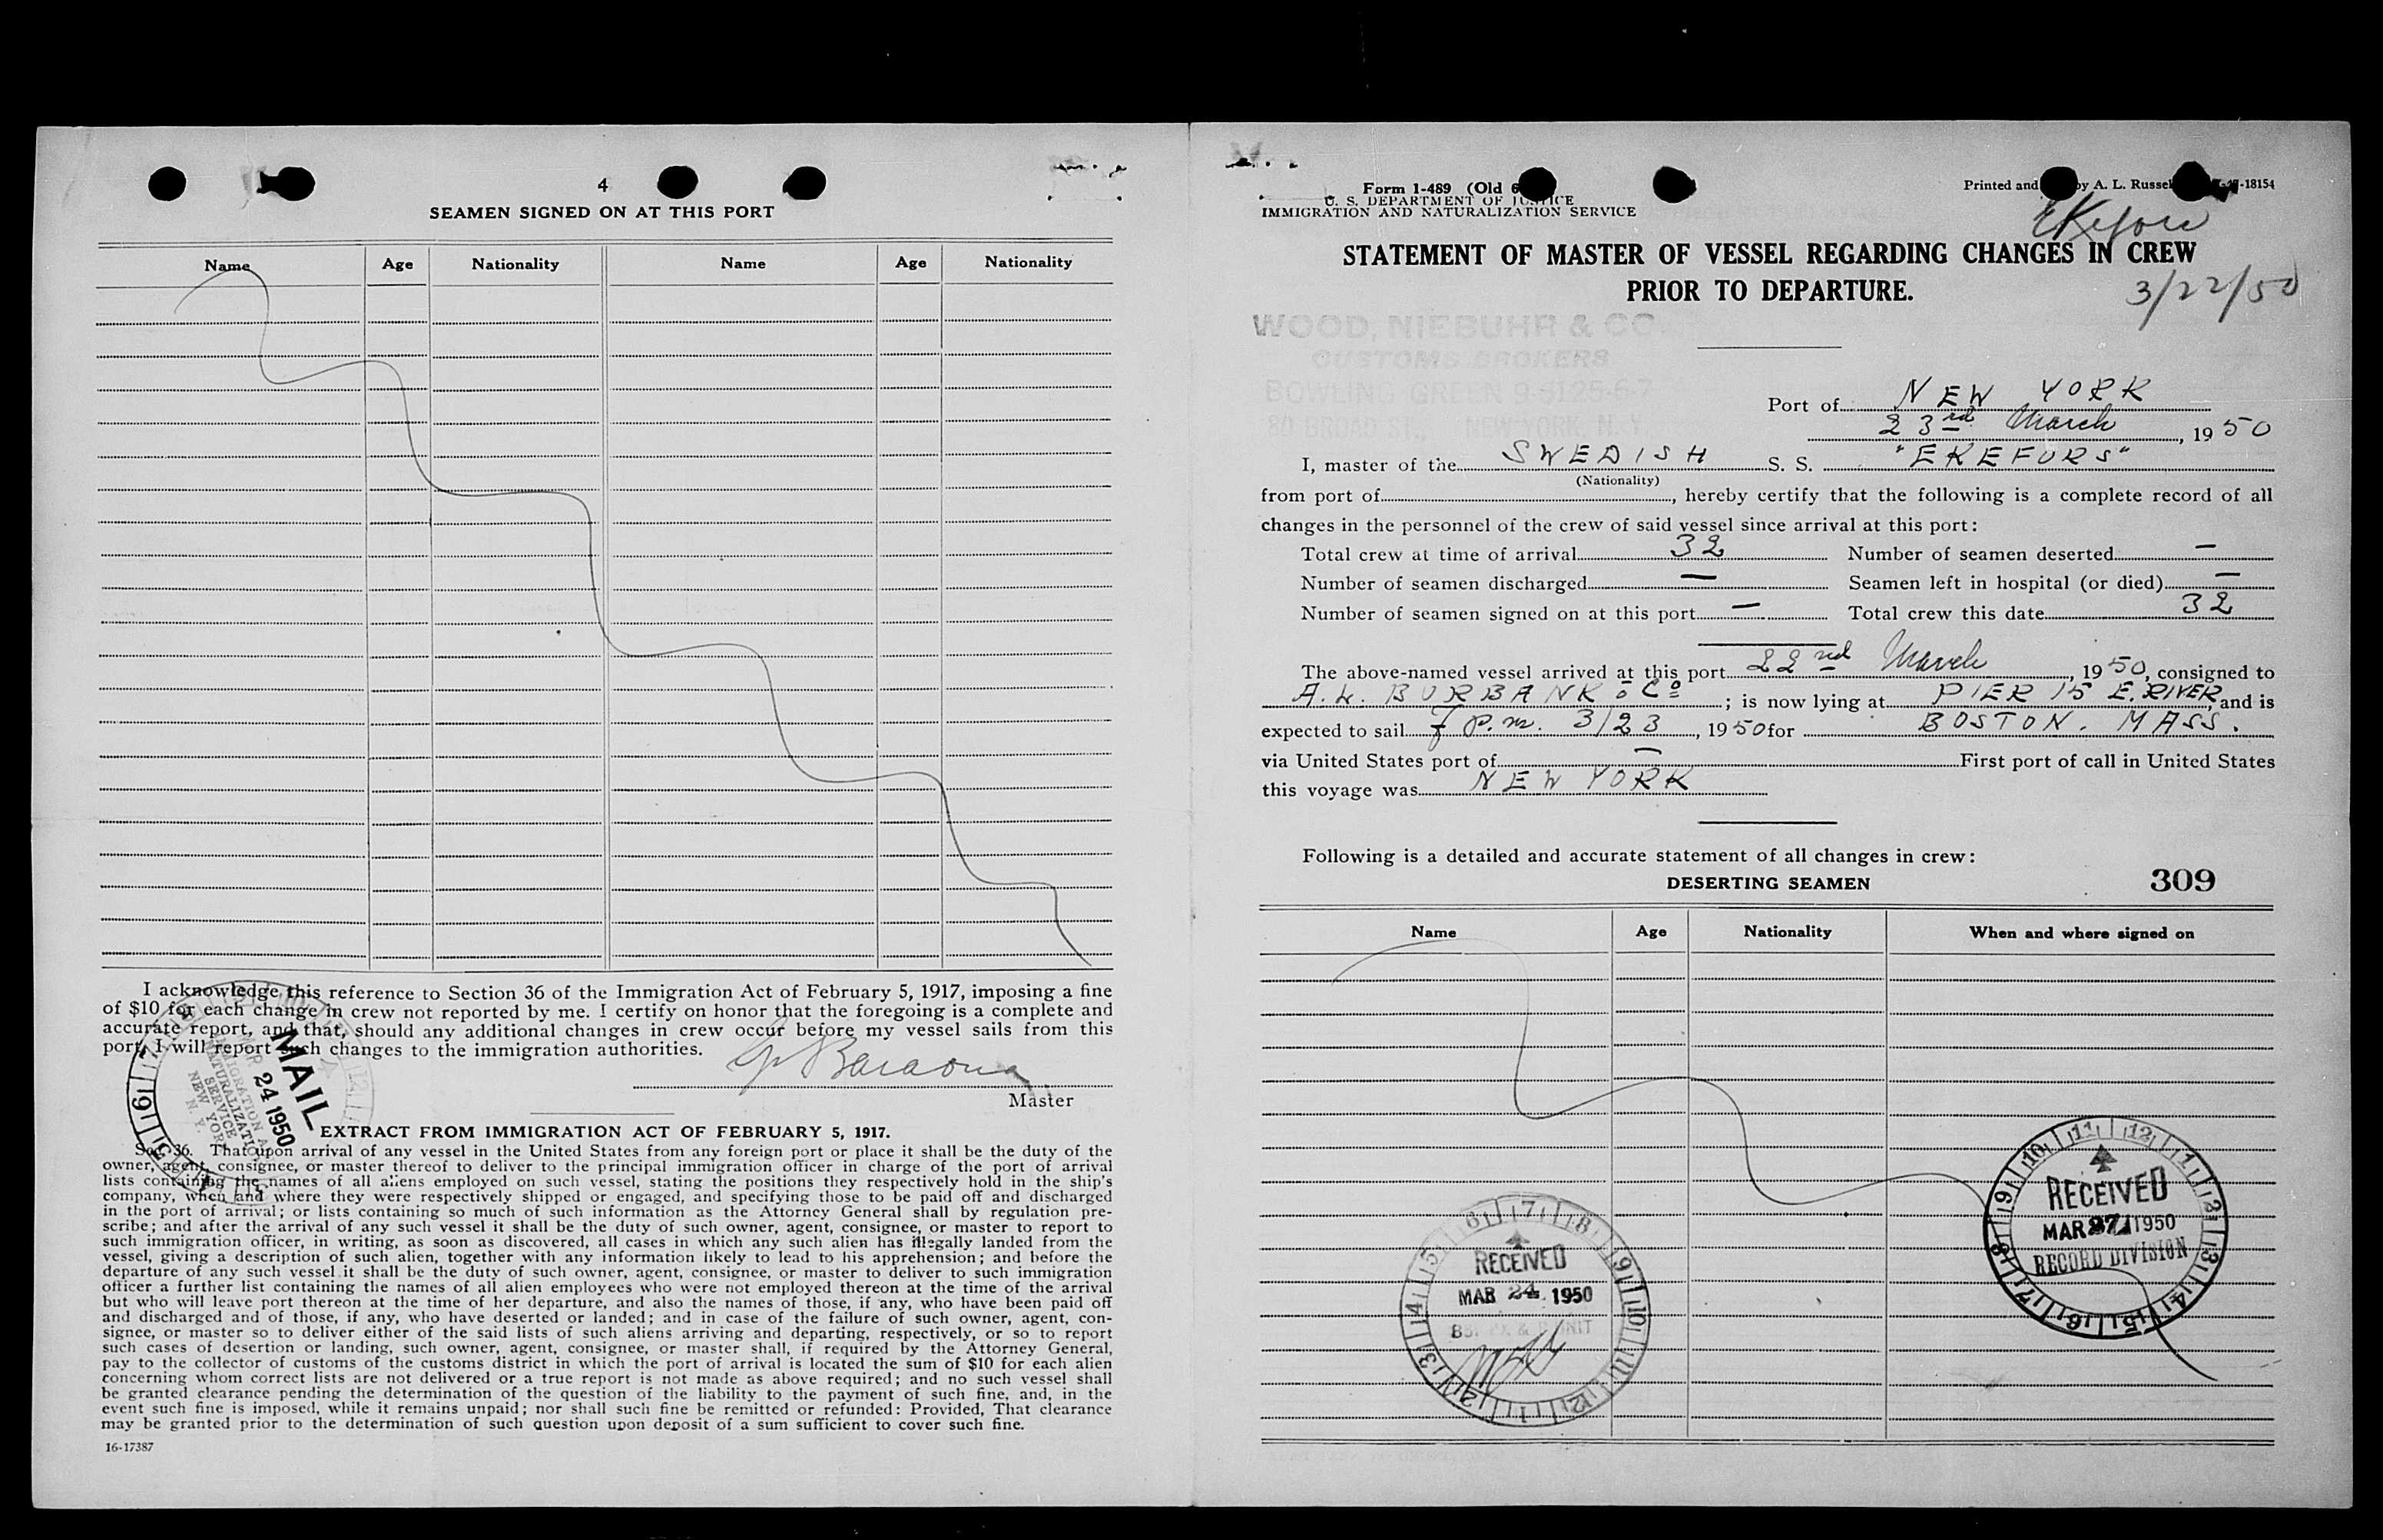 4
SEAMEN SIGNED ON AT THIS PORT
Name Age Nationality Name Age Nationality
I acknowledge this reference to Section 36 of the Immigration Act of February 5, 1917, imposing a fine
of $10 for each change in crew not reported by me. I certify on honor that the foregoing is a complete and
accurate report, and that, should any additional changes in crew occur before my vessel sails from this
port, I will report such changes to the immigration authorities.
Baraona
Master
MAIL
24 1950
IMMIGRATION
NATURALIZATION
SERVICE
NEW YORK
N. Y.
EXTRACT FROM IMMIGRATION ACT OF FEBRUARY 5, 1917.
Sec. 36. That upon arrival of any vessel in the United States from any foreign port or place it shall be the duty of the
owner, agent, consignee, or master thereof to deliver to the principal immigration officer in charge of the port of arrival
lists containing the names of all aliens employed on such vessel, stating the positions they respectively hold in the ship's
company, when and where they were respectively shipped or engaged, and specifying those to be paid off and discharged
in the port of arrival; or lists containing so much of such information as the Attorney General shall by regulation pre-
scribe; and after the arrival of any such vessel it shall be the duty of such owner, agent, consignee, or master to report to
such immigration officer, in writing, as soon as discovered, all cases in which any such alien has illegally landed from the
vessel, giving a description of such alien, together with any information likely to lead to his apprehension; and before the
departure of any such vessel it shall be the duty of such owner, agent, consignee, or master to deliver to such immigration
officer a further list containing the names of all alien employees who were not employed thereon at the time of the arrival
but who will leave port thereon at the time of her departure, and also the names of those, if any, who have been paid off
and discharged and of those, if any, who have deserted or landed; and in case of the failure of such owner, agent, con-
signee, or master so to deliver either of the said lists of such aliens arriving and departing, respectively, or so to report
such cases of desertion or landing, such owner, agent, consignee, or master shall, if required by the Attorney General,
pay to the collector of customs of the customs district in which the port of arrival is located the sum of $10 for each alien
concerning whom correct lists are not delivered or a true report is not made as above required; and no such vessel shall
be granted clearance pending the determination of the question of the liability to the payment of such fine, and, in the
event such fine is imposed, while it remains unpaid; nor shall such fine be remitted or refunded: Provided, That clearance
may be granted prior to the determination of such question upon deposit of a sum sufficient to cover such fine.
16-17387
Form 1-489 (Old 6
Printed and by A. L. Russel -18154
U. S. DEPARTMENT OF JUSTICE
IMMIGRATION AND NATURALIZATION SERVICE
STATEMENT OF MASTER OF VESSEL REGARDING CHANGES IN CREW
PRIOR TO DEPARTURE.
3/22/50
WOOD, NIEBUHR & CO.
CUSTOMS BROKERS
BOWLING GREEN 9-5125-6-7
80 BROAD ST., NEW YORK, N. Y.
Port of NEW YORK
23rd March, 1950
I, master of the SWEDISH S. S. "EKEFORS"
(Nationality)
from port of, hereby certify that the following is a complete record of all
changes in the personnel of the crew of said vessel since arrival at this port:
Total crew at time of arrival 32 Number of seamen deserted —
Number of seamen discharged — Seamen left in hospital (or died) —
Number of seamen signed on at this port — Total crew this date 32
The above-named vessel arrived at this port 22nd March, 1950, consigned to
A. L. BURBANK & Co; is now lying at PIER 15 E. RIVER, and is
expected to sail 7 p.m. 3/23, 1950 for BOSTON. MASS.
via United States port of — First port of call in United States
this voyage was NEW YORK
Following is a detailed and accurate statement of all changes in crew:
DESERTING SEAMEN 309
Name Age Nationality When and where signed on
RECEIVED
MAR 27 1950
RECORD DIVISION
RECEIVED
MAR 24 1950